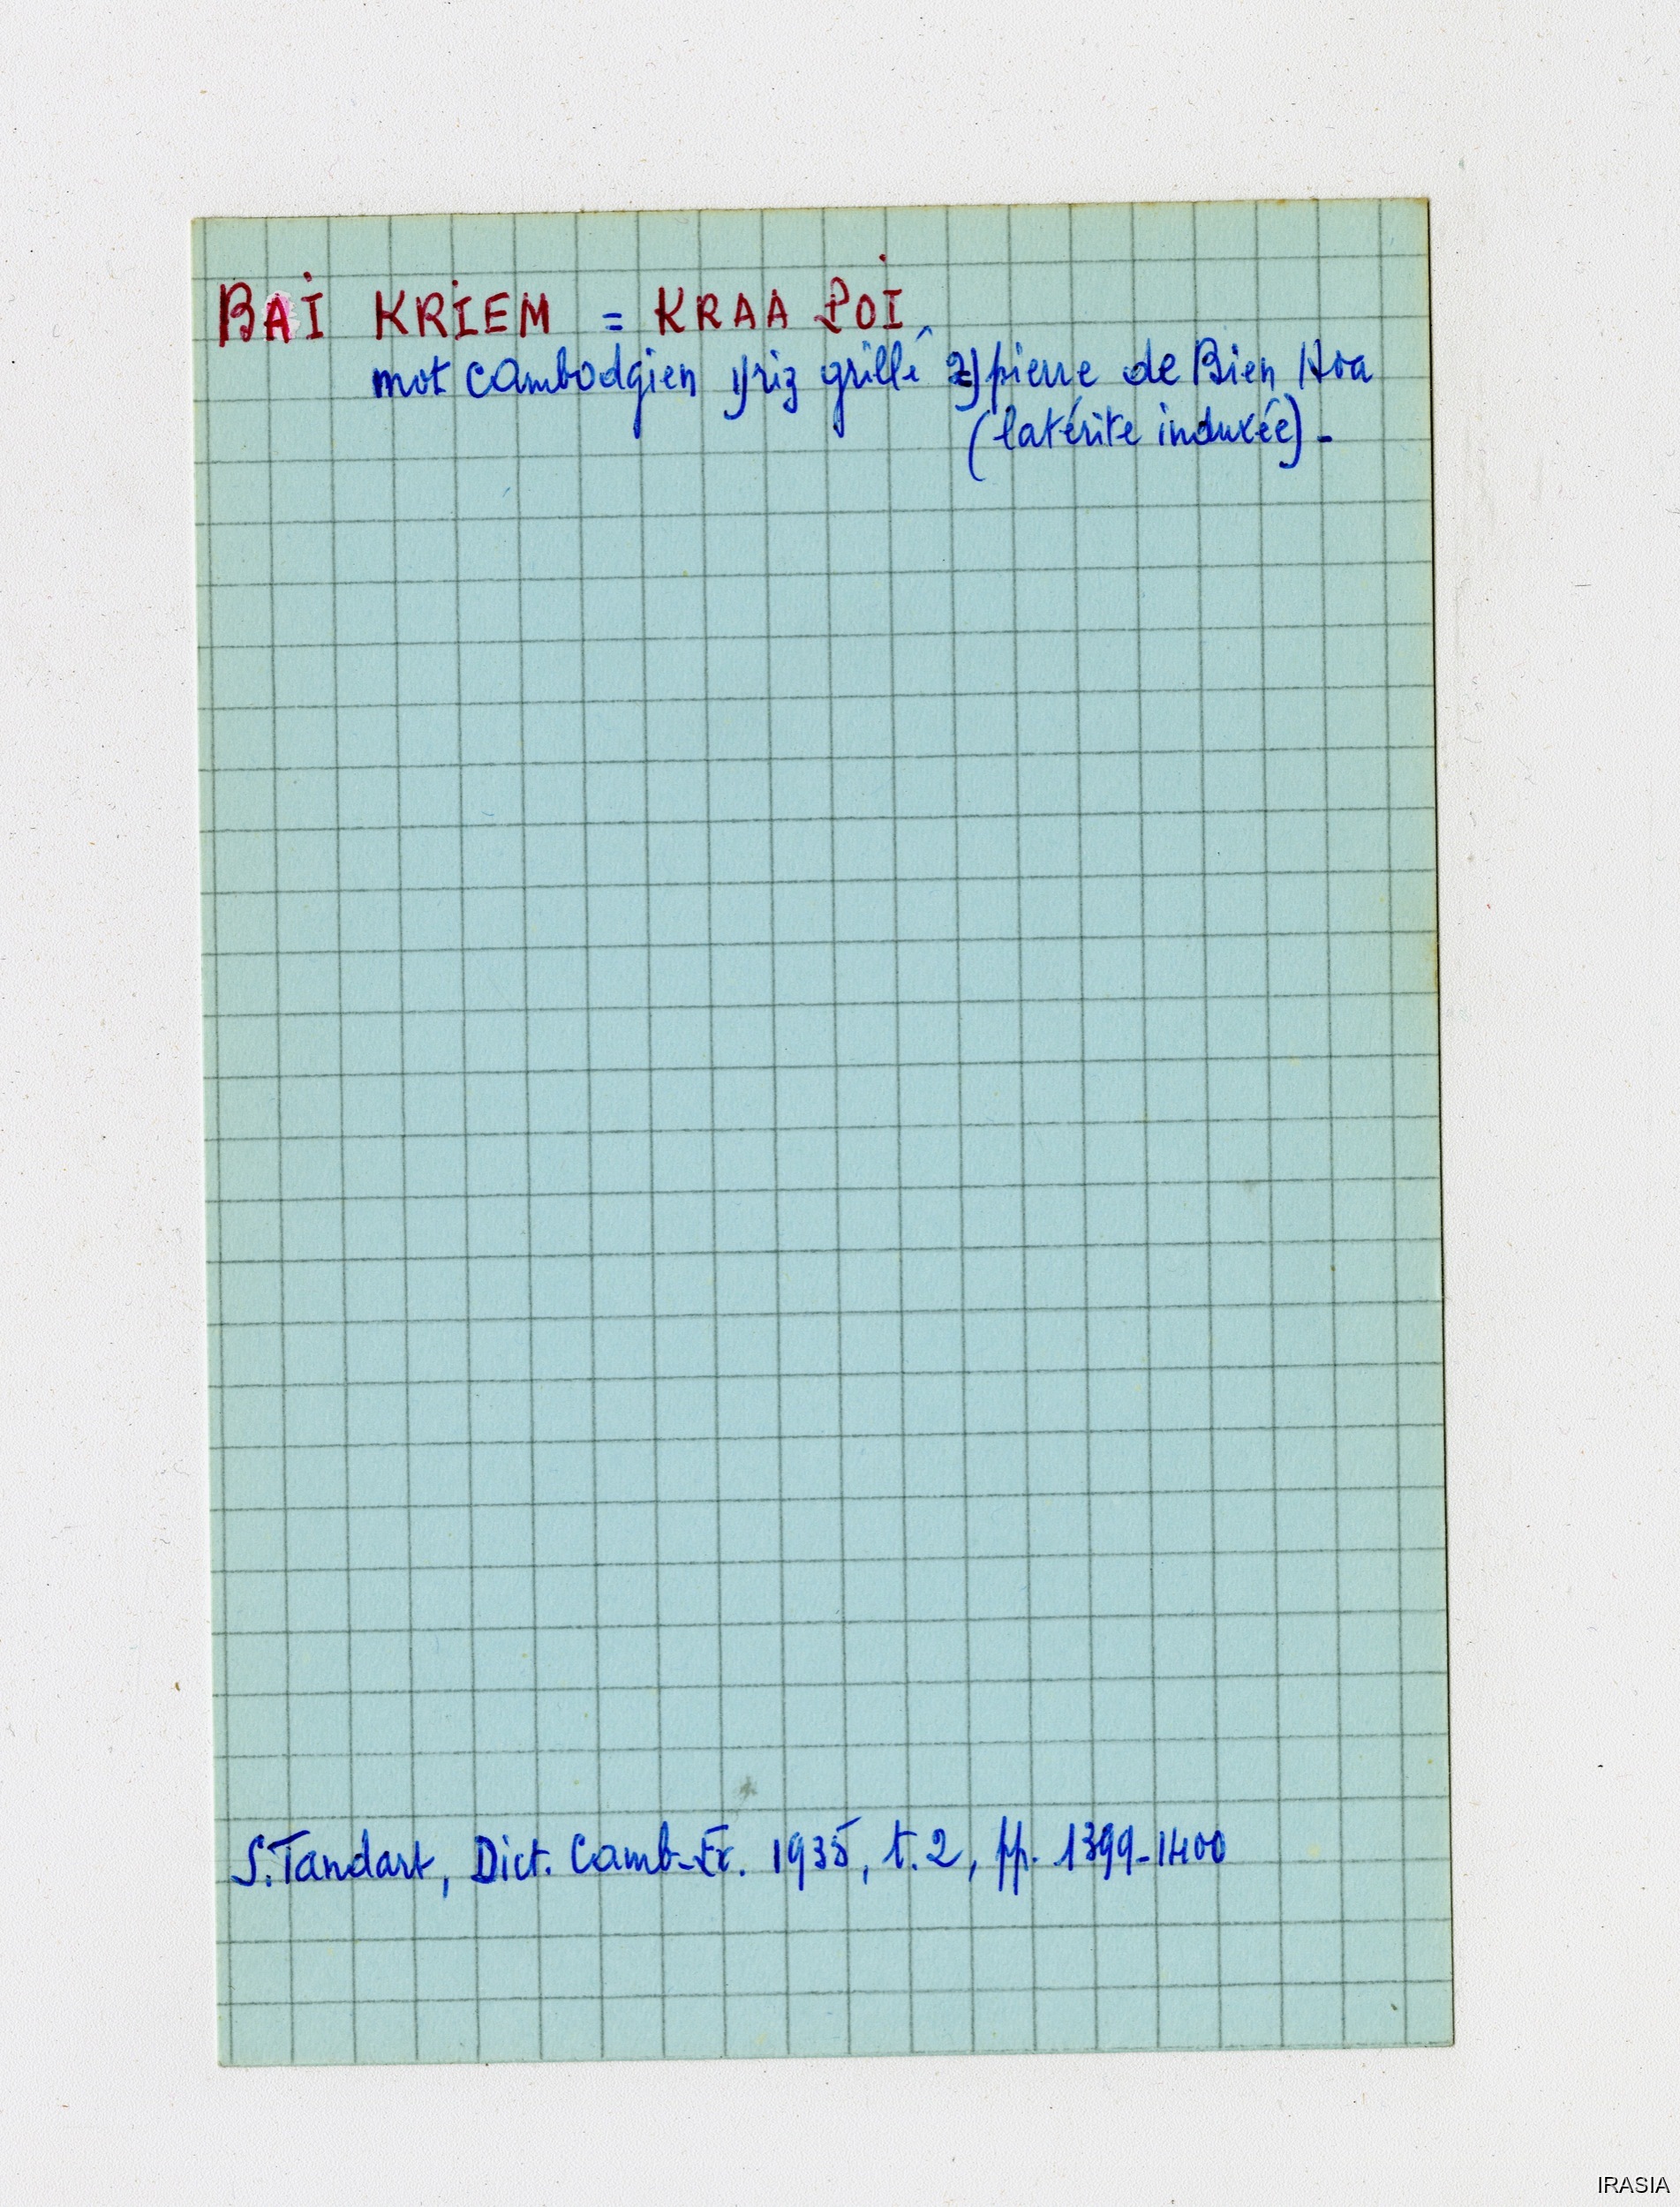 BAI KRIEM = KRAA POI
mot cambodgien 1) riz grillé 2) pierre de Bien Hoa
(latérite indurée) -
S. Tandart, Dict. Camb-Fr. 1935, t. 2, pp. 1399-1400
IRASIA